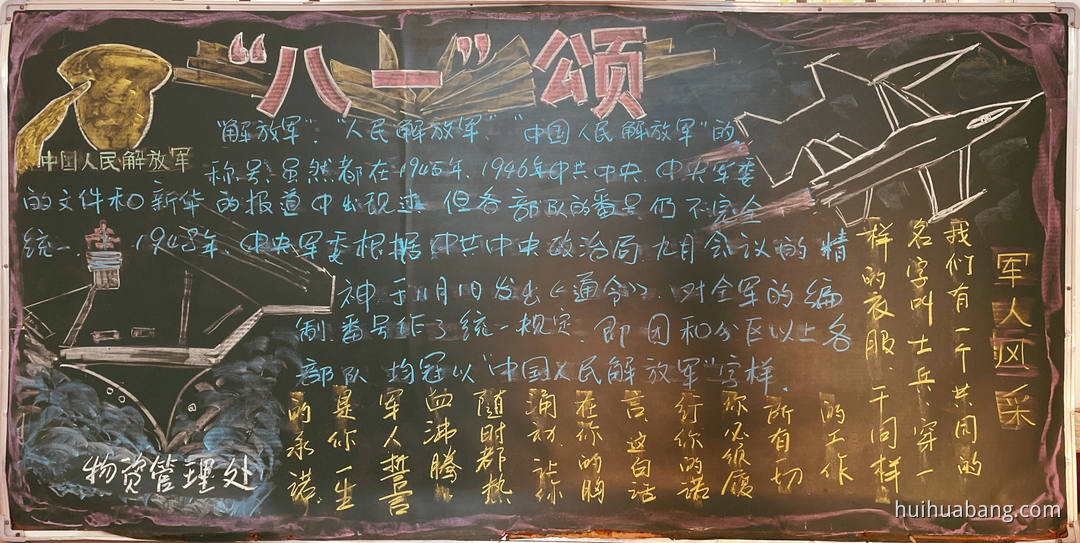 “八一”颂
中国人民解放军
“解放军”、“人民解放军”、“中国人民解放军”的
称号,虽然都在1945年、1946年中共中央、中央军委
的文件和新华的报道中出现过,但各部队的番号仍不完全
统一.1948年,中央军委根据中共中央政治局九月会议的精
神于11月1日发出《通令》,对全军的编
制番号作了统一规定,即团和分区以上各
部队均冠以“中国人民解放军”字样.
军人风采
我们有一个共同的
名字叫士兵、穿一
样的衣服、干同样
的工作
所有一切
你必须履
行你的诺
言、这句话
在你的胸
涌动、
随时都热
血沸腾
军人誓言
是你一生
的承诺.
物资管理处
huihuabang.com